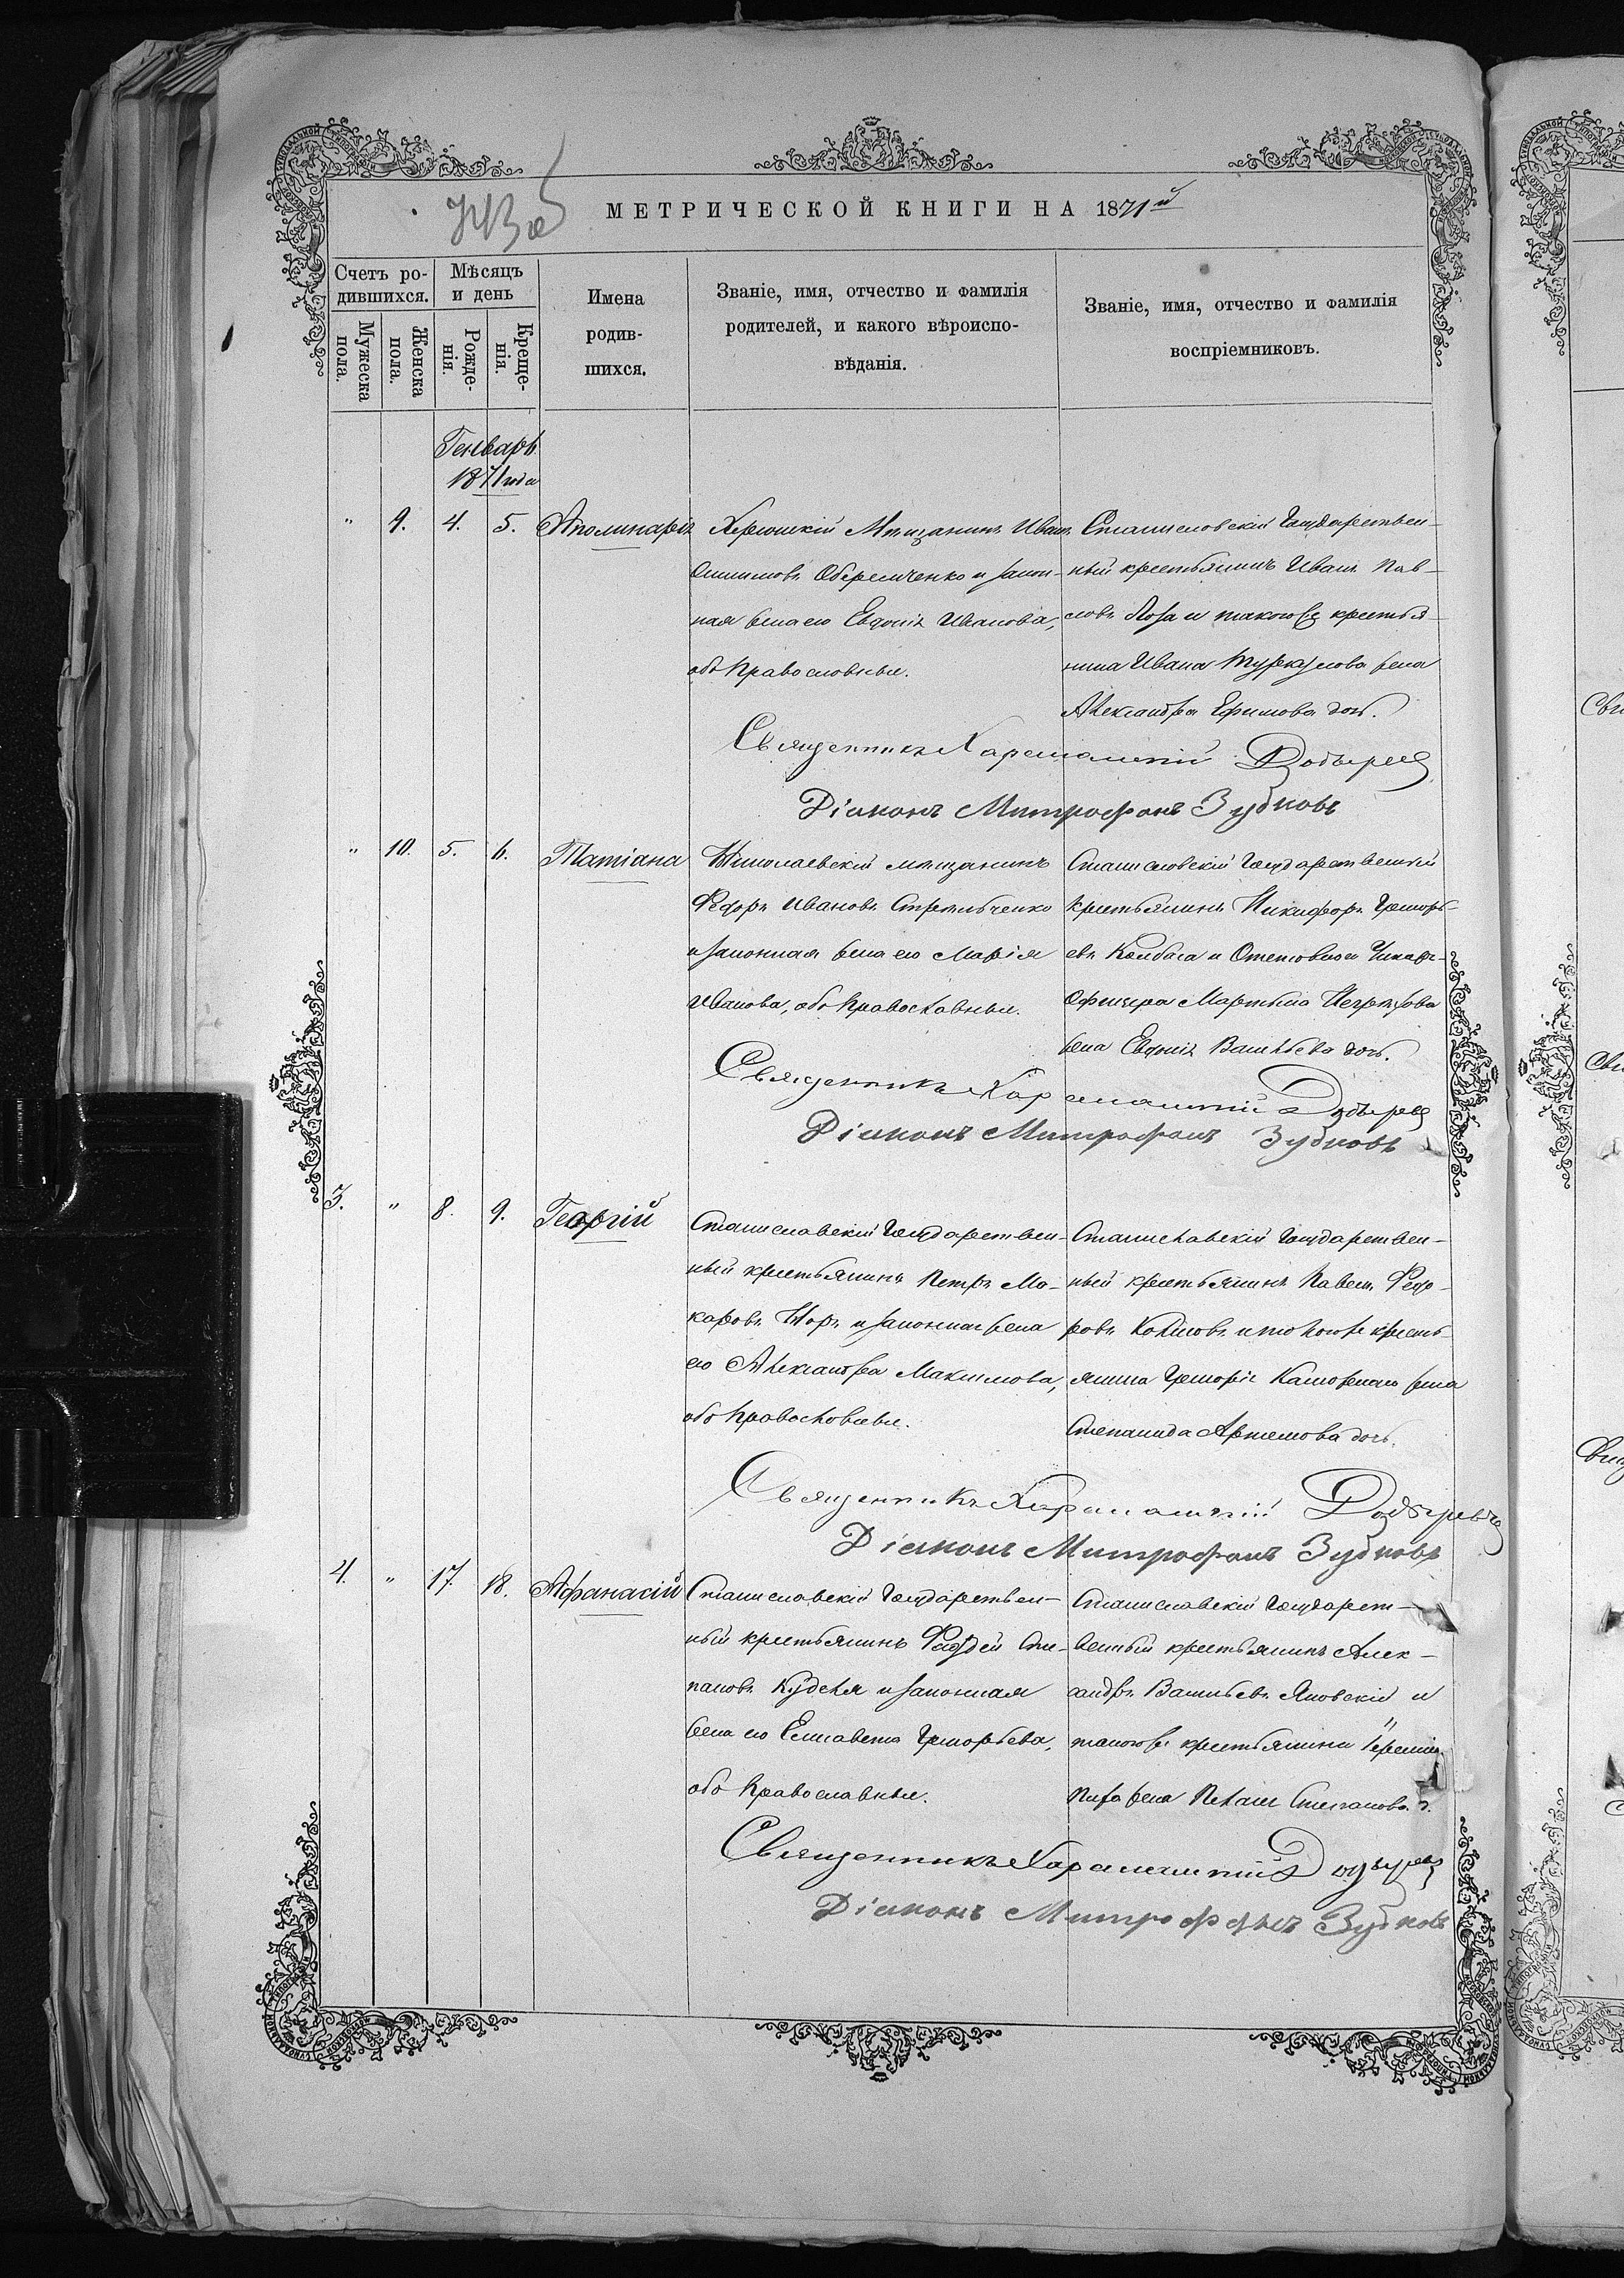 МЕТРИЧЕСКОЙ КНИГИ НА 1871й
Счетъ ро-
дившихся.
Мужеска
пола.
Женска
пола.
Мѣсяцъ
и день
Рожде-
нія.
Креще-
нія.
Имена
родив-
шихся.
Званіе, имя, отчество и фамилія
родителей, и какого вѣроиспо-
вѣданія.
Званіе, имя, отчество и фамилія
воспріемниковъ.
Генварь
1871 года
" 9. 4. 5. Аполинарія
Мѣщанинъ Иванъ
и закон-
ная жена его Евдокія Иванова,
оба православные.
Станиславскій Государствен-
ный крестьянинъ Иванъ Пав-
ловъ и такогоже крестья-
нина Ивана жена
Александра Ефимова дочь.
Священникъ Харалампій
Діаконъ Митрофанъ Зубковъ
" 10. 5. 6. Татіана
Николаевскій мѣщанинъ
Федоръ Ивановъ Стрельченко
и законная жена его Марія
Иванова, оба православные.
Станиславскій Государственный
крестьянинъ Никифоръ Григорь-
евъ Колбаса и Унтеръ-
Офицера Мартына
жена Евдокія Васильева дочь.
Священникъ Харалампій
Діаконъ Митрофанъ Зубковъ
3. " 8. 9. Георгій
Станиславскій Государствен-
ный крестьянинъ Петръ Ма-
каровъ и законная жена
его Александра Максимова,
оба православные.
Станиславскій Государствен-
ный крестьянинъ Павелъ Федо-
ровъ и такогоже кресть-
янина Григорія жена
Степанида Артемова дочь.
Священникъ Харалампій
Діаконъ Митрофанъ Зубковъ
4. " 17. 18. Афанасій
Станиславскій Государствен-
ный крестьянинъ Фадѣй Сте-
пановъ Куделя и законная
жена его Елисавета Григорьева,
оба православные.
Станиславскій Государст-
венный крестьянинъ Алек-
сандръ Васильевъ Яновскій и
такогоже крестьянина
жена Пелагея Степанова д.
Священникъ Харалампій
Діаконъ Митрофанъ Зубковъ